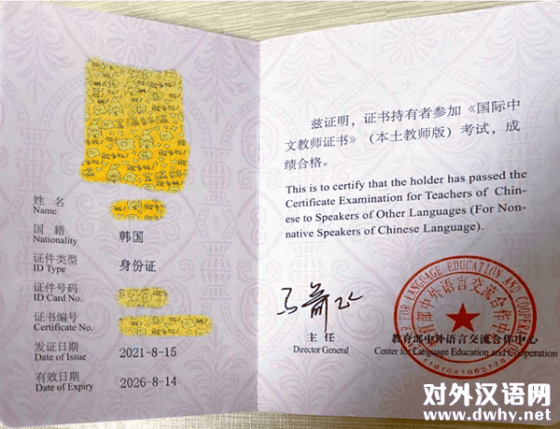 姓名
Name
国籍
Nationality
韩国
证件类型
ID Type
身份证
证件号码
ID Card No.
证书编号
Certificate No.
发证日期
Date of Issue
2021-8-15
有效日期
Date of Expiry
2026-8-14
兹证明，证书持有者参加《国际中
文教师证书》（本土教师版）考试，成
绩合格。
This is to certify that the holder has passed the
Certificate Examination for Teachers of Chin-
ese to Speakers of Other Languages (For Non-
native Speakers of Chinese Language).
主任
Director General
教育部中外语言交流合作中心
Center for Language Education and Cooperation
对外汉语网
www.dwhy.net